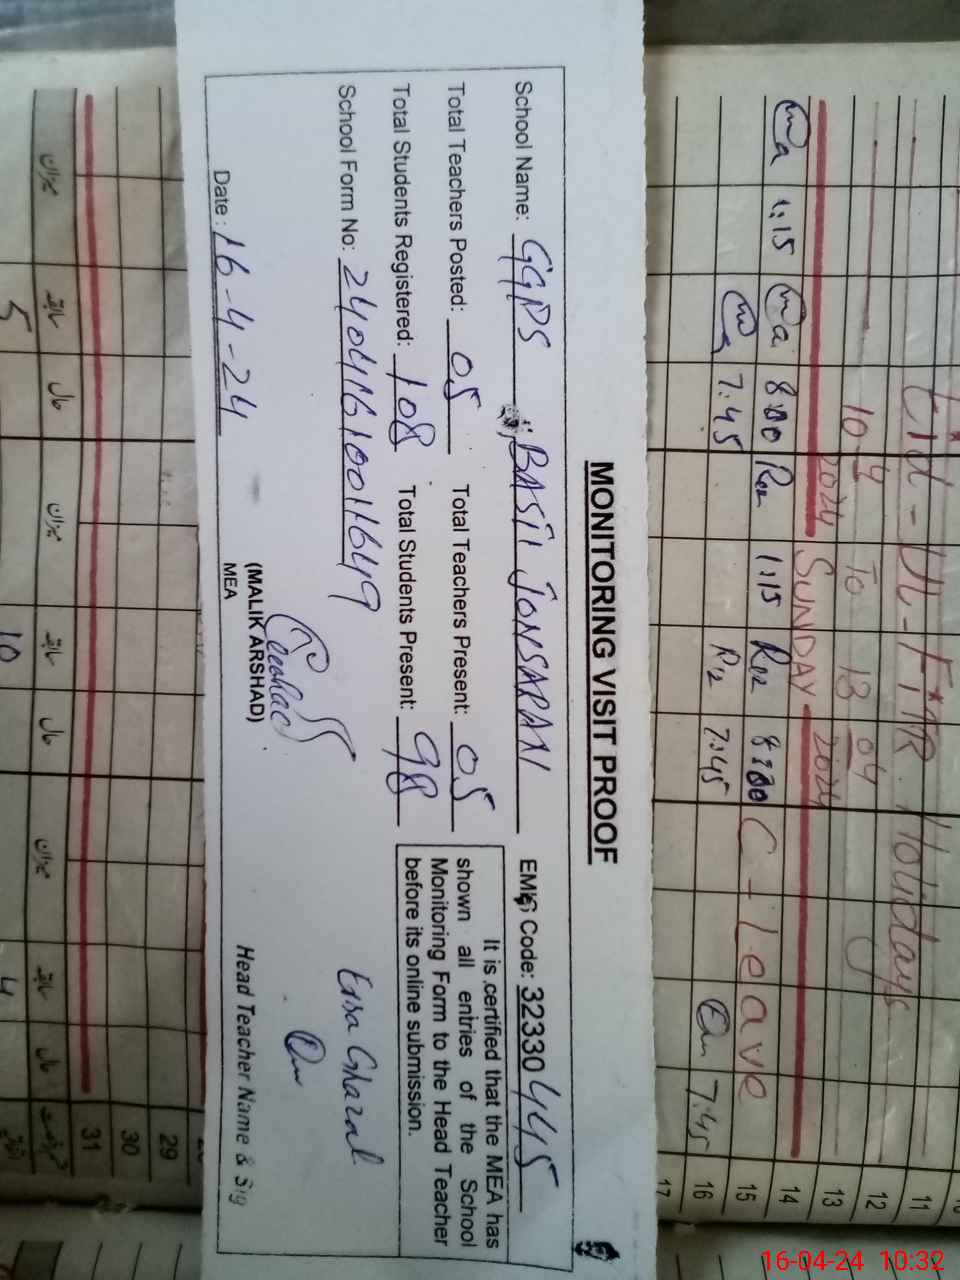 MONITORING VISIT PROOF
School Name: GGPS BASTI JONSARAN EMIS Code: 32330445
Total Teachers Posted: 05 Total Teachers Present: 05
Total Students Registered: 108 Total Students Present: 98
School Form No: 2404161001649
It is certified that the MEA has
shown all entries of the School
Monitoring Form to the Head Teacher
before its online submission.
(MALIK ARSHAD)
MEA
Date: 16-4-24
Head Teacher Name & Sig
Eid-UL-FITR Holidays
10-4 To 13 04
2024 SUNDAY 2024
1:15 8:00 1:15 8:00 C-Leave
7:45 7:45 7:45
11
12
13
14
15
16
17
29
30
31
میزان سابقہ حال میزان سابقہ حال میزان سابقہ حال
5 10 4
16-04-24 10:32